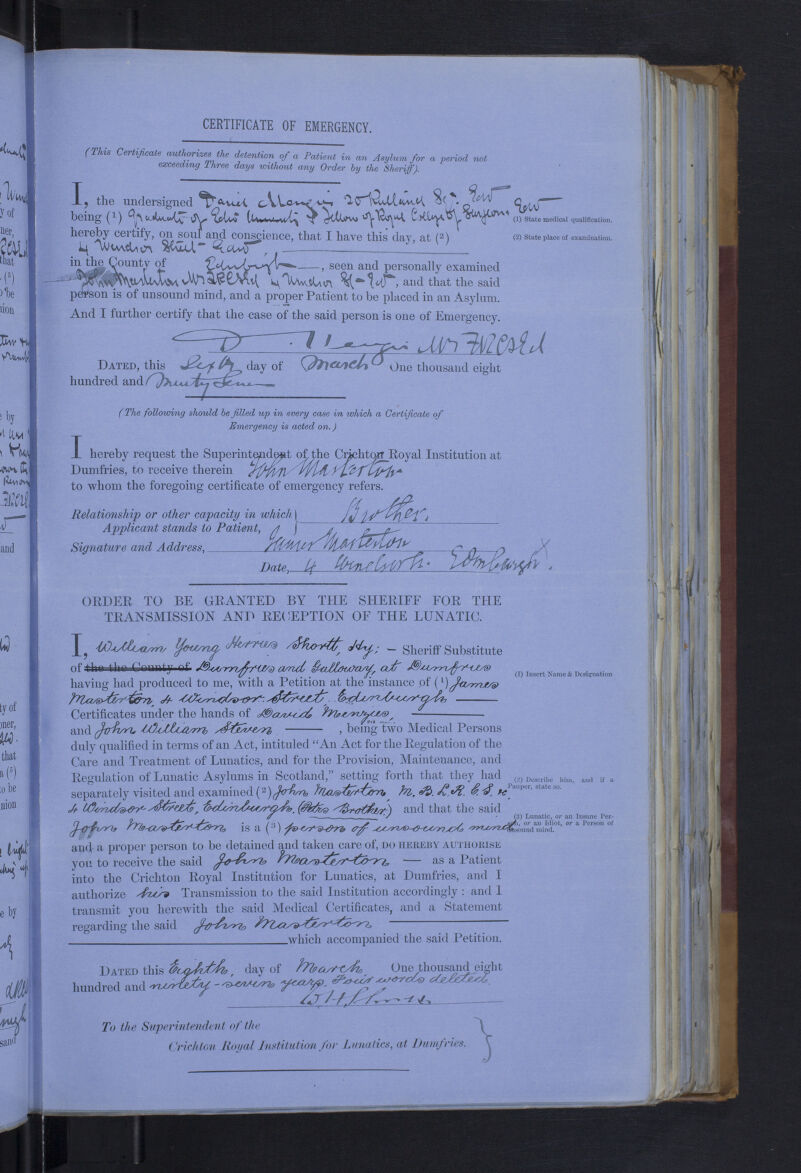 CERTIFICATE OF EMERGENCY.
(This Certificate authorizes the detention of a Patient in an Asylum for a period not
exceeding Three days without any Order by the Sheriff).
I, the undersigned 20 Rutland St. Edin
being (1) Graduate of Edin University & Fellow of Royal College of Surgeons Edin
(1) State medical qualification.
hereby certify, on soul and conscience, that I have this day, at (2)
(2) State place of examination.
4 Windsor Street Edin
in the County of Edinburgh, seen and personally examined
John Masterton 4 Windsor St Edin, and that the said
person is of unsound mind, and a proper Patient to be placed in an Asylum.
And I further certify that the case of the said person is one of Emergency.
DATED, this Sixth day of March One thousand eight
hundred and Ninety Seven
(The following should be filled up in every case in which a Certificate of
Emergency is acted on.)
I hereby request the Superintendent of the Crichton Royal Institution at
Dumfries, to receive therein John Masterton
to whom the foregoing certificate of emergency refers.
Relationship or other capacity in which
Applicant stands to Patient, Brother.
Signature and Address, James Masterton
Date, 4 Windsor St. Edinburgh.
ORDER TO BE GRANTED BY THE SHERIFF FOR THE
TRANSMISSION AND RECEPTION OF THE LUNATIC.
I, William Young Herries Shortt, Sheriff Substitute
of the the County of Dumfries and Galloway, at Dumfries
having had produced to me, with a Petition at the instance of (1) James
(1) Insert Name & Designation
Masterton, 4 Windsor Street, Edinburgh
Certificates under the hands of David Menzies,
and John William Steven, being two Medical Persons
duly qualified in terms of an Act, intituled "An Act for the Regulation of the
Care and Treatment of Lunatics, and for the Provision, Maintenance, and
Regulation of Lunatic Asylums in Scotland," setting forth that they had
separately visited and examined (2) John Masterton, M.B. L.R.C.S.
(2) Describe him, and if a
Pauper, state so.
4 Windsor Street, Edinburgh, Brother) and that the said
John Masterton is a (3) person of unsound mind
(3) Lunatic, or an Insane Per-
son, or an Idiot, or a Person of
unsound mind.
and a proper person to be detained and taken care of, DO HEREBY AUTHORISE
you to receive the said John Masterton as a Patient
into the Crichton Royal Institution for Lunatics, at Dumfries, and I
authorize his Transmission to the said Institution accordingly: and I
transmit you herewith the said Medical Certificates, and a Statement
regarding the said John Masterton
which accompanied the said Petition.
DATED this Eighth, day of March One thousand eight
hundred and ninety-seven years. Four words deleted
To the Superintendent of the
Crichton Royal Institution for Lunatics, at Dumfries.